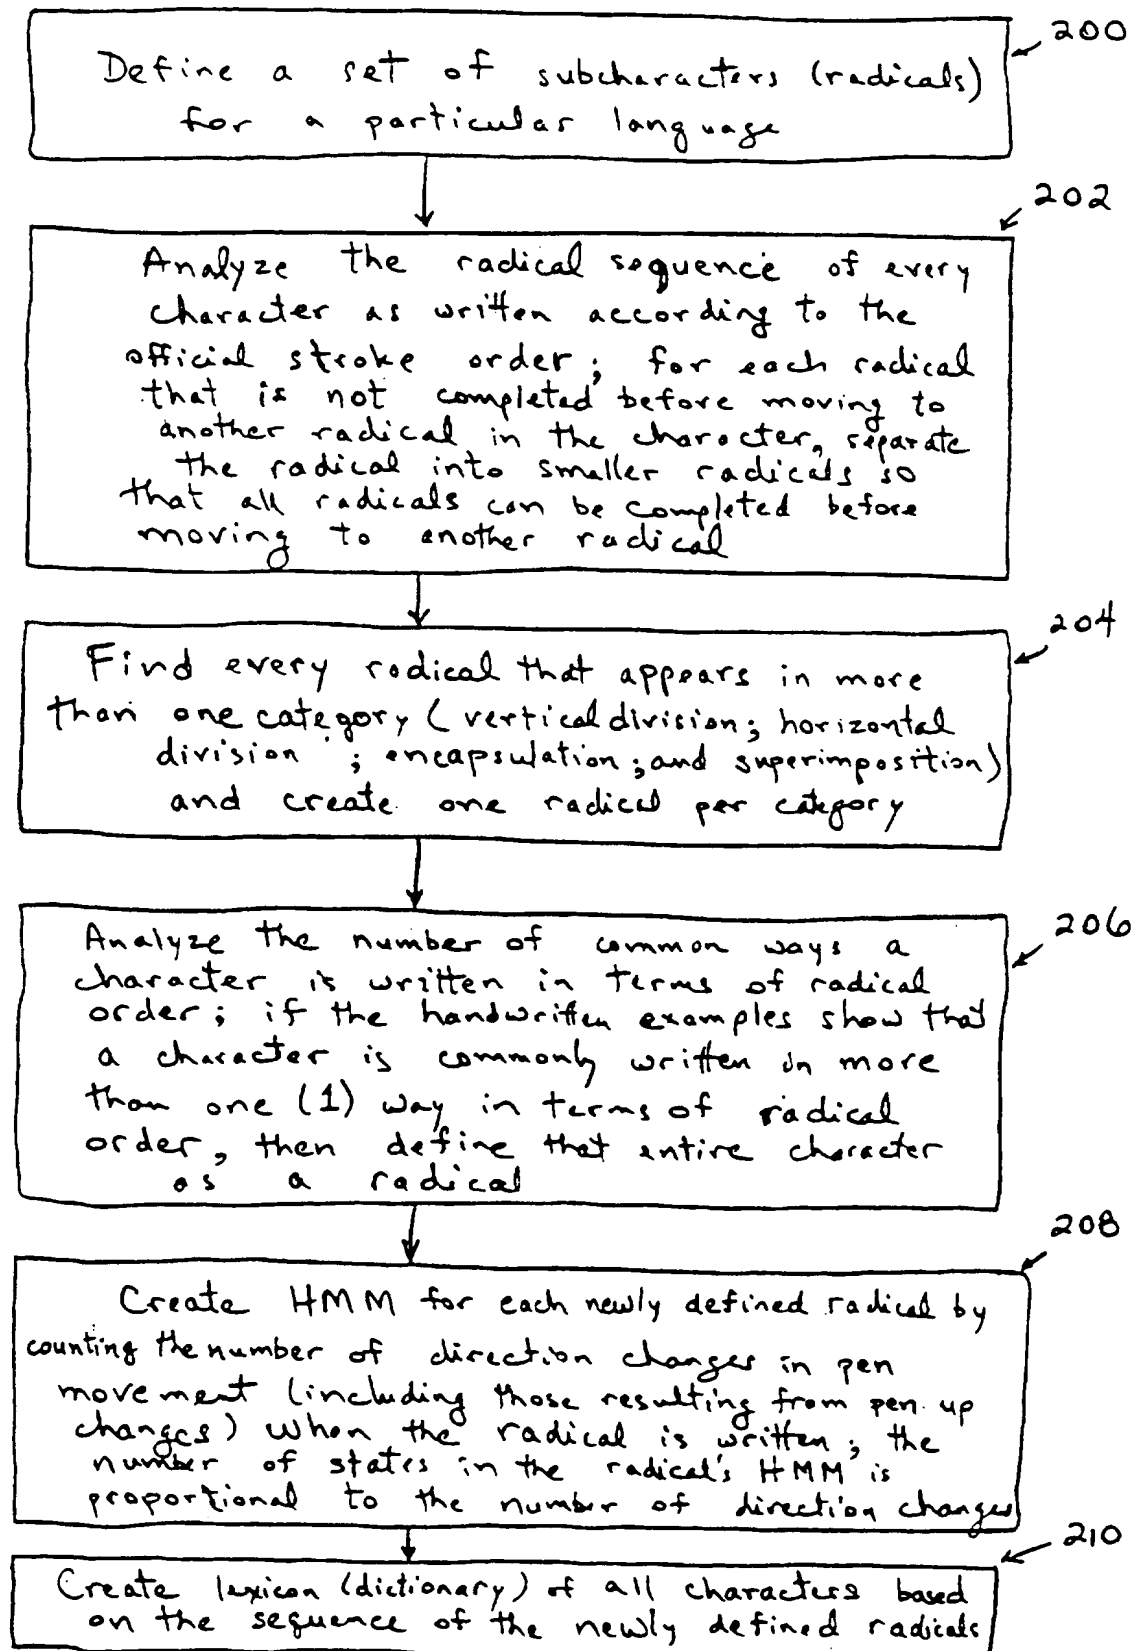 200
Define a set of subcharacters (radicals)
for a particular language
202
Analyze the radical sequence of every
character as written according to the
official stroke order; for each radical
that is not completed before moving to
another radical in the character, separate
the radical into smaller radicals so
that all radicals can be completed before
moving to another radical
204
Find every radical that appears in more
than one category (vertical division; horizontal
division ; encapsulation; and superimposition)
and create one radical per category
206
Analyze the number of common ways a
character is written in terms of radical
order; if the handwritten examples show that
a character is commonly written in more
than one (1) way in terms of radical
order, then define that entire character
as a radical
208
Create HMM for each newly defined radical by
counting the number of direction changes in pen
movement (including those resulting from pen up
changes) when the radical is written; the
number of states in the radical's HMM is
proportional to the number of direction changes
210
Create lexicon (dictionary) of all characters based
on the sequence of the newly defined radicals